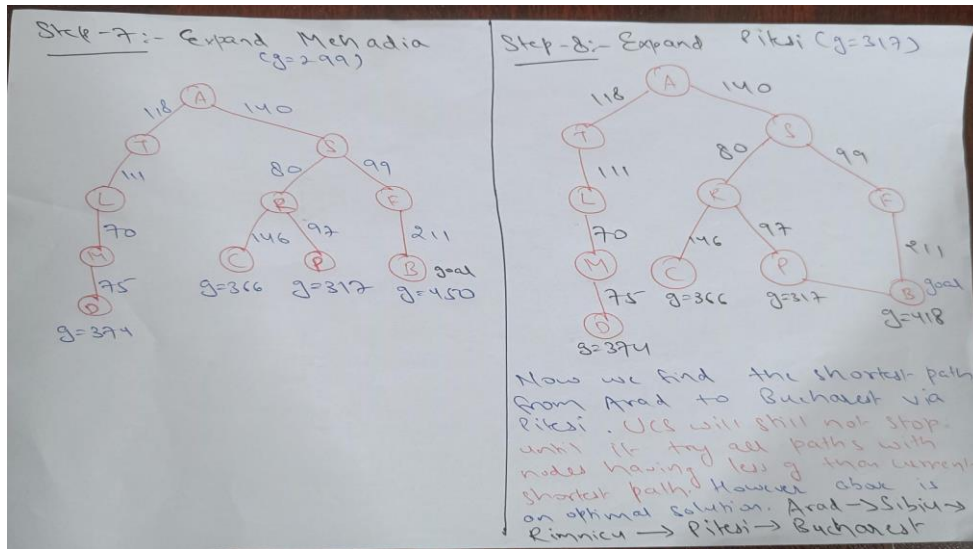 Step-7:- Expand Mehadia
(g=299)
A
118
140
T
S
111
80
99
L
R
F
70
146
97
211
M
C
P
B goal
75
g=366 g=317 g=450
D
g=374
Step-8:- Expand Pitesi (g=317)
A
118
140
T
S
111
80
99
L
R
F
70
146
97
211
M
C
P
B goal
75
g=366
g=317
g=418
D
g=374
Now we find the shortest path
from Arad to Bucharest via
Pitesi. UCS will still not stop
until it try all paths with
nodes having less g than current
shortest path. However above is
an optimal solution. Arad → Sibiu →
Rimnicu → Pitesi → Bucharest